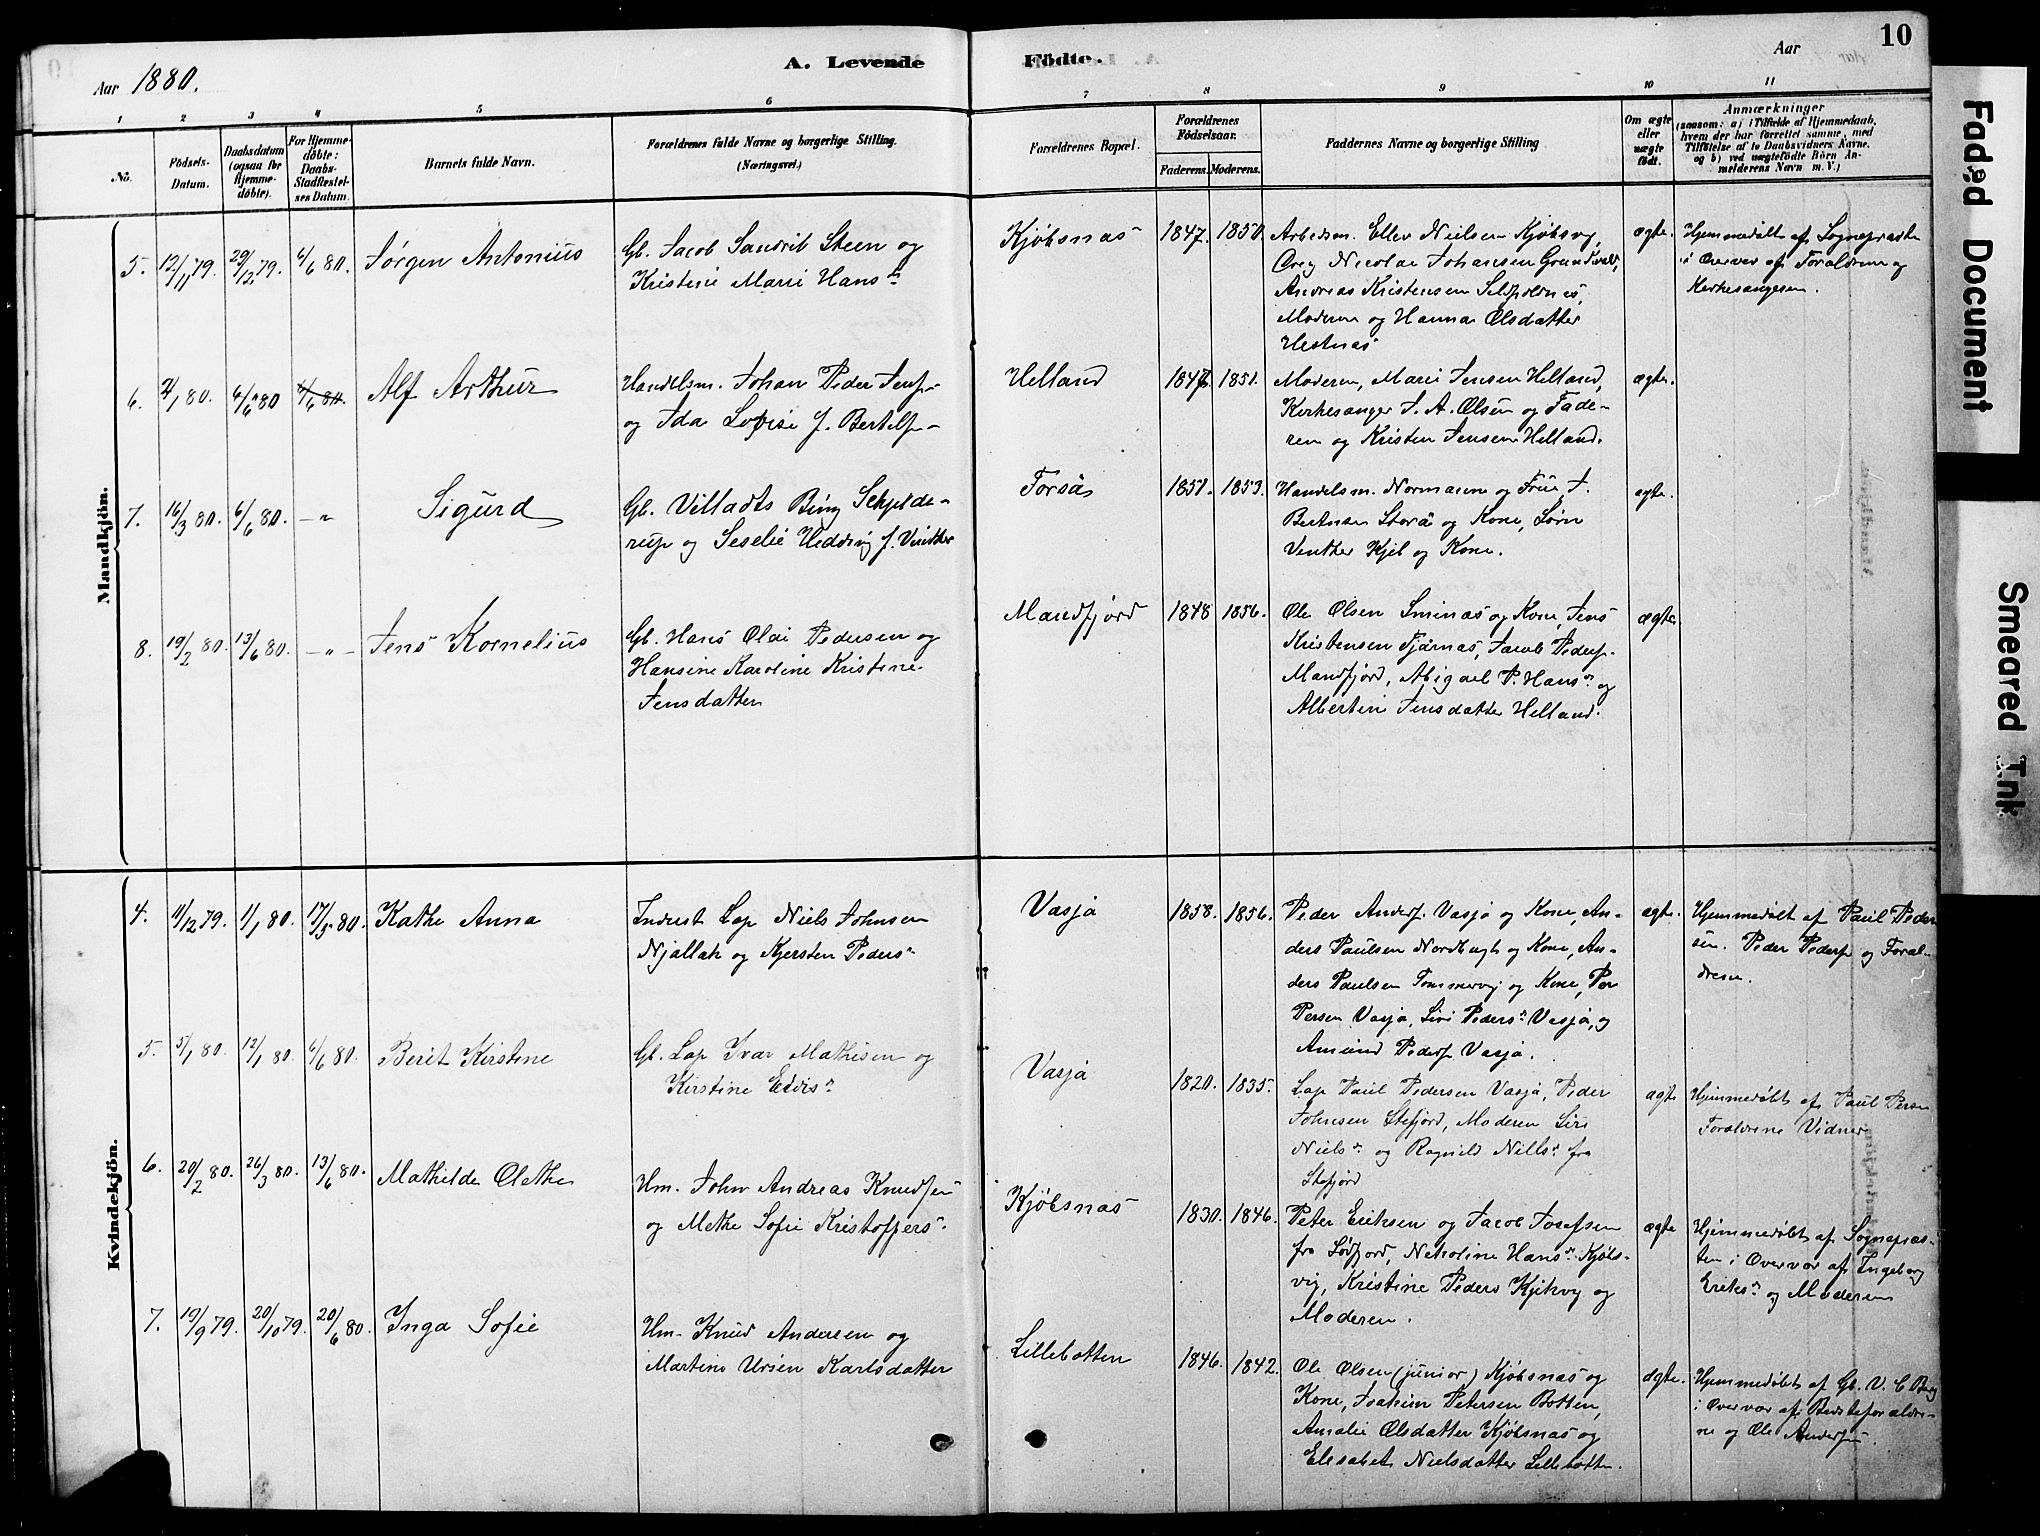 10
Aar 1880.
A. Levende
Födte.
Aar
1
2
3
4
5
6
7
8
9
10
11
No.
Födsels-
Datum.
Daabsdatum
(ogsaa for
Hjemme-
døbte).
For Hjemme-
døbte:
Daabs-
Stadfæstel-
ses Datum.
Barnets fulde Navn.
Forældrenes fulde Navne og borgerlige Stilling.
(Næringsvei.)
Forældrenes Bopæl.
Forældrenes
Födselsaar.
Faderens. Moderens.
Faddernes Navne og borgerlige Stilling
Om ægte
eller
uægte
født.
Anmærkninger
(saasom: a) i Tilfælde af Hjemmedaab,
hvem der har forrettet samme, med
Tilføielse af to Daabsvidners Navne.
og b) ved uægtefödte Börn An-
melderens Navn m. V.)
Mandkjön.
5. 12/11 79. 29/12 79. 6/6 80. Jørgen Antonius
Gb. Jacob Sandrib Steen og
Kristine Marie Hansd.
Kjøbsnas 1847. 1850.
Arbedsm. Ellev Nielsen Kjøbsvg,
Nicolai Johansen Grundvald,
Andreas Kristensen
Moderen og Hanna Olsdatter
Hestnas
ægte.
Hjemmedøbt af Sogneprasten
i Overvar af Foraldrene og
Kirkesangeren.
6. 4/1 80. 6/6 80 6/6 80. Alf Arthur
Handelsm. Johan Peder Jens-
og Ida Lovise f. Bertels-
Helland 1847. 1851.
Moderen, Marie Jensen Helland,
Kirkesanger J. A. Olsen og Fade-
ren og Kristen Jensen Helland.
ægte.
7. 16/3 80. 6/6 80. -"- Sigurd
Gb. Villadts Bing Schjelde-
rup og Seselie Hedvig f. Vinther
Forså 1851. 1853.
Handelsm. Normann og Frue, J.
Berntsen Storå og Kone, Sørn
Venther Kjel og Kone.
ægte.
8. 19/2 80. 13/6 80. -"- Jens Kornelius
Gb. Hans Olai Pedersen og
Hansine Karoline Kristine
Jensdatter
Mandfjord 1848 1856.
Ole Olsen Sminas og Kone, Jens
Kristensen Tjårnas, Jacob Peders.
Mandfjord, Abigael P. Hansd. og
Albertine Jensdatter Helland.
ægte.
Kvindekjön.
4. 11/12 79. 1/1 80. 17/5 80. Kathe Anna
Inderst Lap Niels Johnsen
Njallah og Kjersten Pedersd.
Vasja 1858. 1856.
Peder Anders. Vasja og Kone, An-
ders Paulsen Nordbugt og Kone, An-
ders Paulsen Tommervg og Kone, Per
Persen Vasja, Siri Pedersd. Vasja, og
Amund Peders. Vasja.
ægte.
Hjemmedøbt af Paul Peder
sen. Peder Peders. og Foral-
drene.
5. 5/1 80. 12/1 80. 6/6 80. Berit Kirstine
Gb. Lap Ivar Mathisen og
Kirstine
Vasja 1820. 1835.
Lap Paul Pedersen Vasja, Peder
Johnsen Stefjord, Moderen Siri
Nielsd. og Ragnild Nillsd. fra
Stefjord
ægte
Hjemmedøbt af Paul Persen
Foraldrene Vidner
6. 20/2 80. 26/3 80. 13/6 80. Mathilde Olethe
Hm. John Andreas Knudsen
og Methe Sofie Kristoffersd.
Kjøbsnas 1830. 1846.
Peter Eriksen og Jacob Josefsen
fra Lødfjord, Nekoline Hansd. Kjøbs-
vig, Kristine Peders Kjikvg og
Moderen.
ægte
Hjemmedøbt af Sognepras-
ten i Overvar af Ingeborg
Eriksd. og Moderen
7. 19/9 79. 20/10 79. 20/6 80. Inga Sofie
Hm. Knud Andersen og
Martine Ursen Karlsdatter
Lillebotten 1846. 1842.
Ole Olsen (junior) Kjøbsnas og
Kone, Joakim Petersen Botten,
Amalie Olsdatter Kjøbsnas og
Elisabet Nielsdatter Lillebotten.
ægte.
Hjemmedøbt af Gb. V. C Berg
i Overvar af Bedsteforaldre-
ne og Ole Andersen.
Faded Document
Smeared Ink